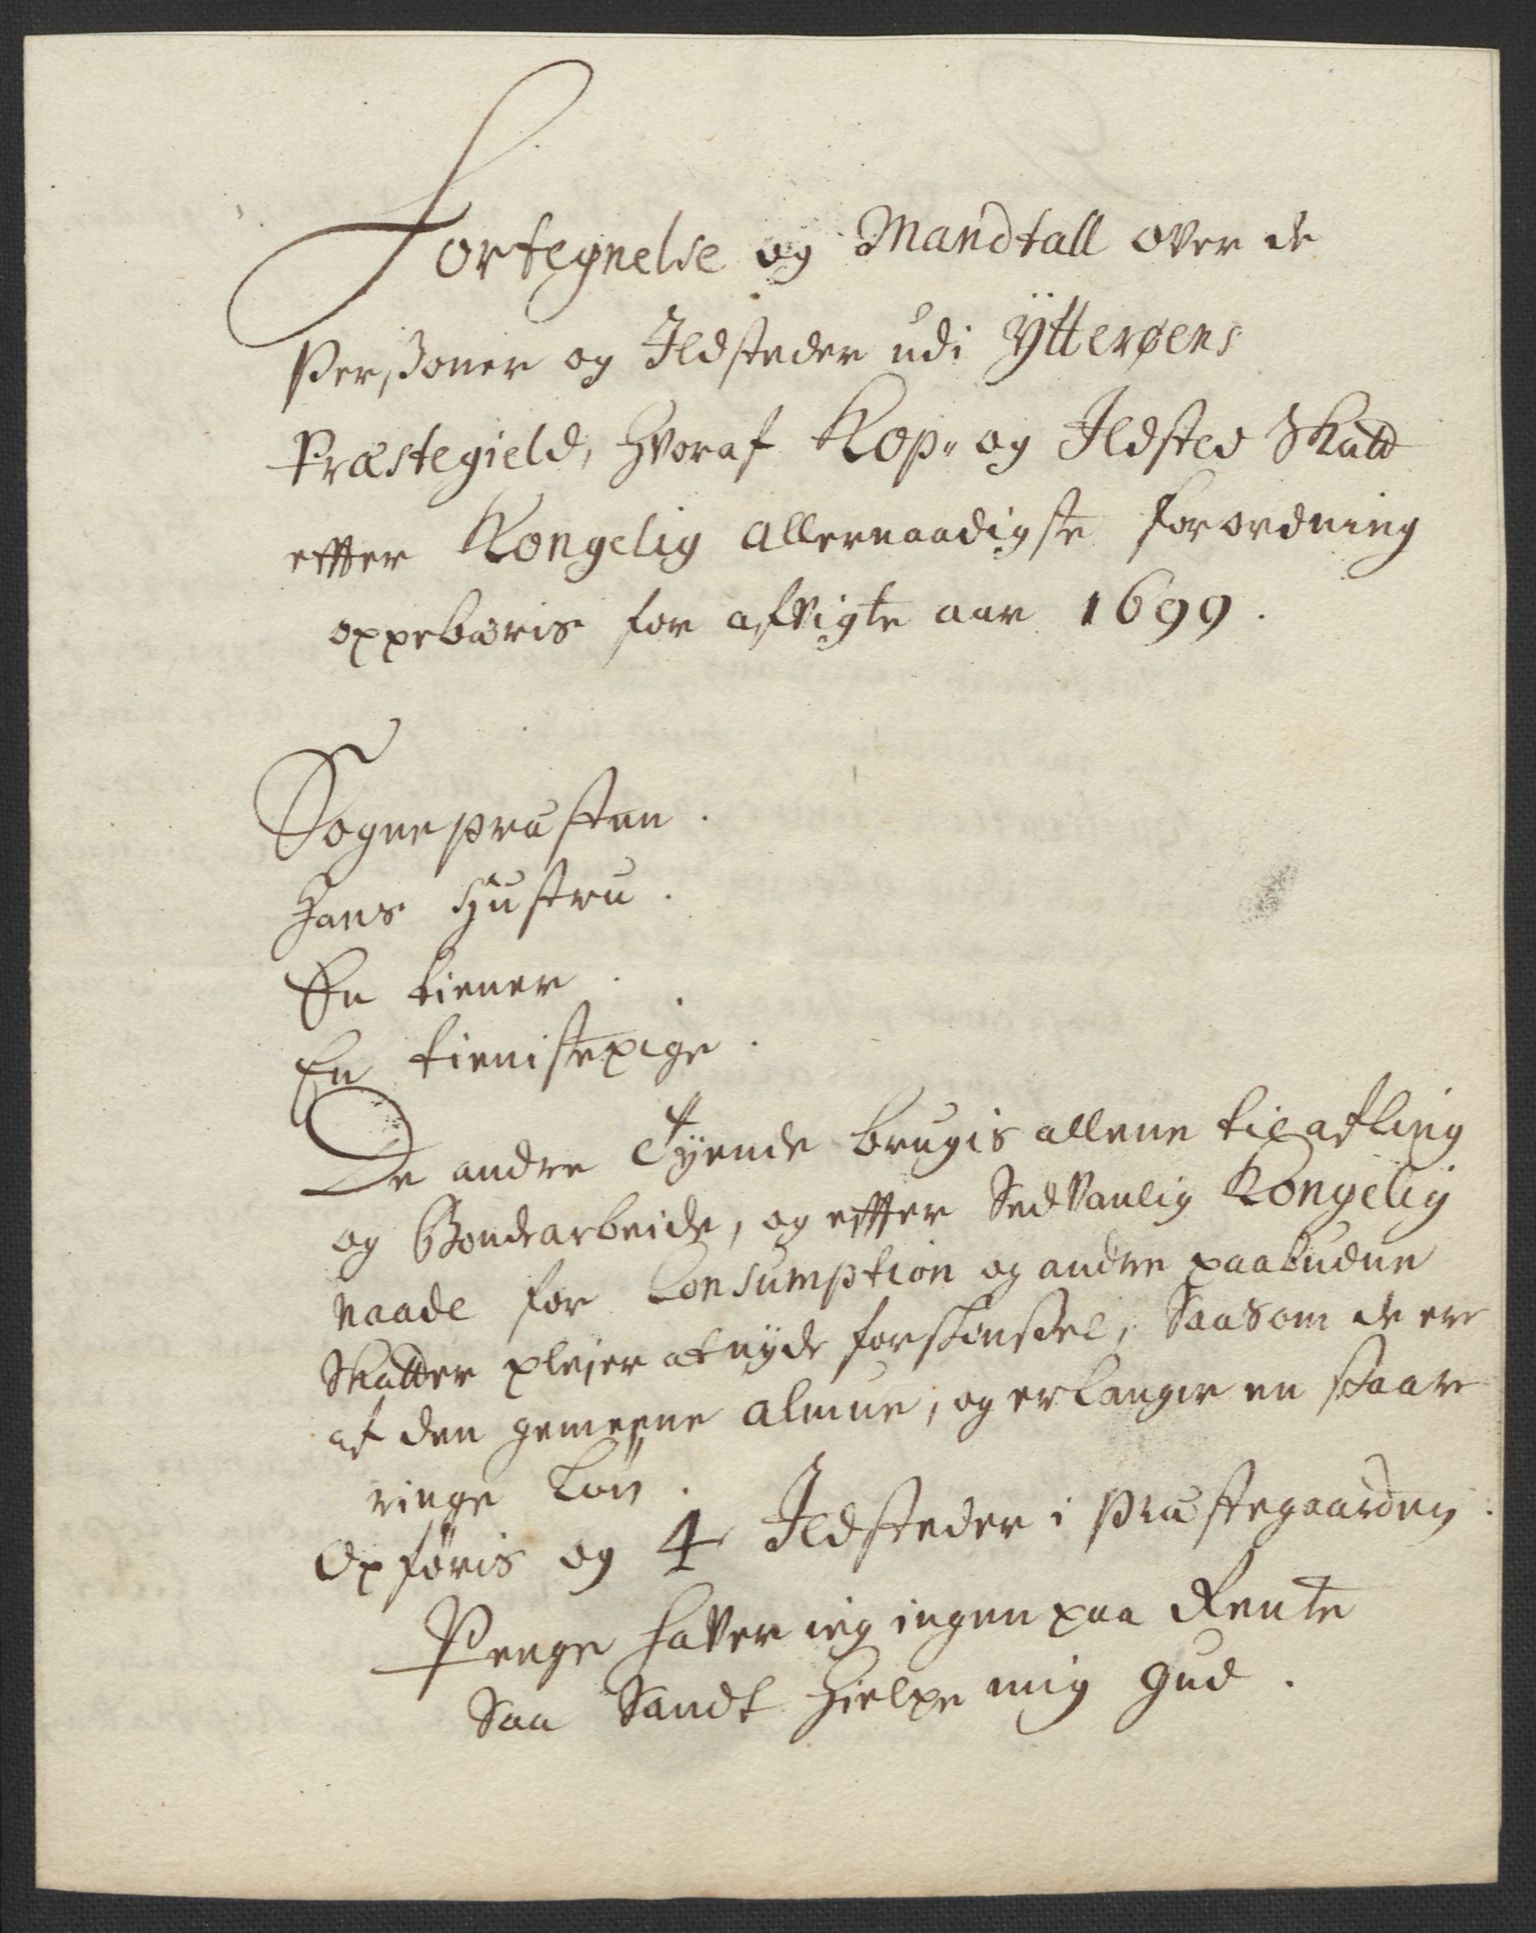 Fortegnelse og Mandtall over de
Perßoner og Ildsteder udi Ÿtterøens
Præstegield, hvoraf Kop- og Ildsted Skatt
effter Kongelig allernaadigste forordning
oppebæris for afvigte aar 1699.
Sognepræsten.
Hans Hustru.
En tiener.
En tienistepige.
De andre Tyende brugis allene til afling
og Bondearbeide, og effter Sedvanlig Kongelig
naade for Consumption og andre paabudne
Skatter pleyer at nyde forskaansel, Saasom de ere
af den gemeene almue, og erlanger en skaare
ringe Løn.
Opføris og 4 Ildsteder i Præstegaarden.
Penge haver ieg ingen paa Rente
Saa Sandt hielpe mig Gud.